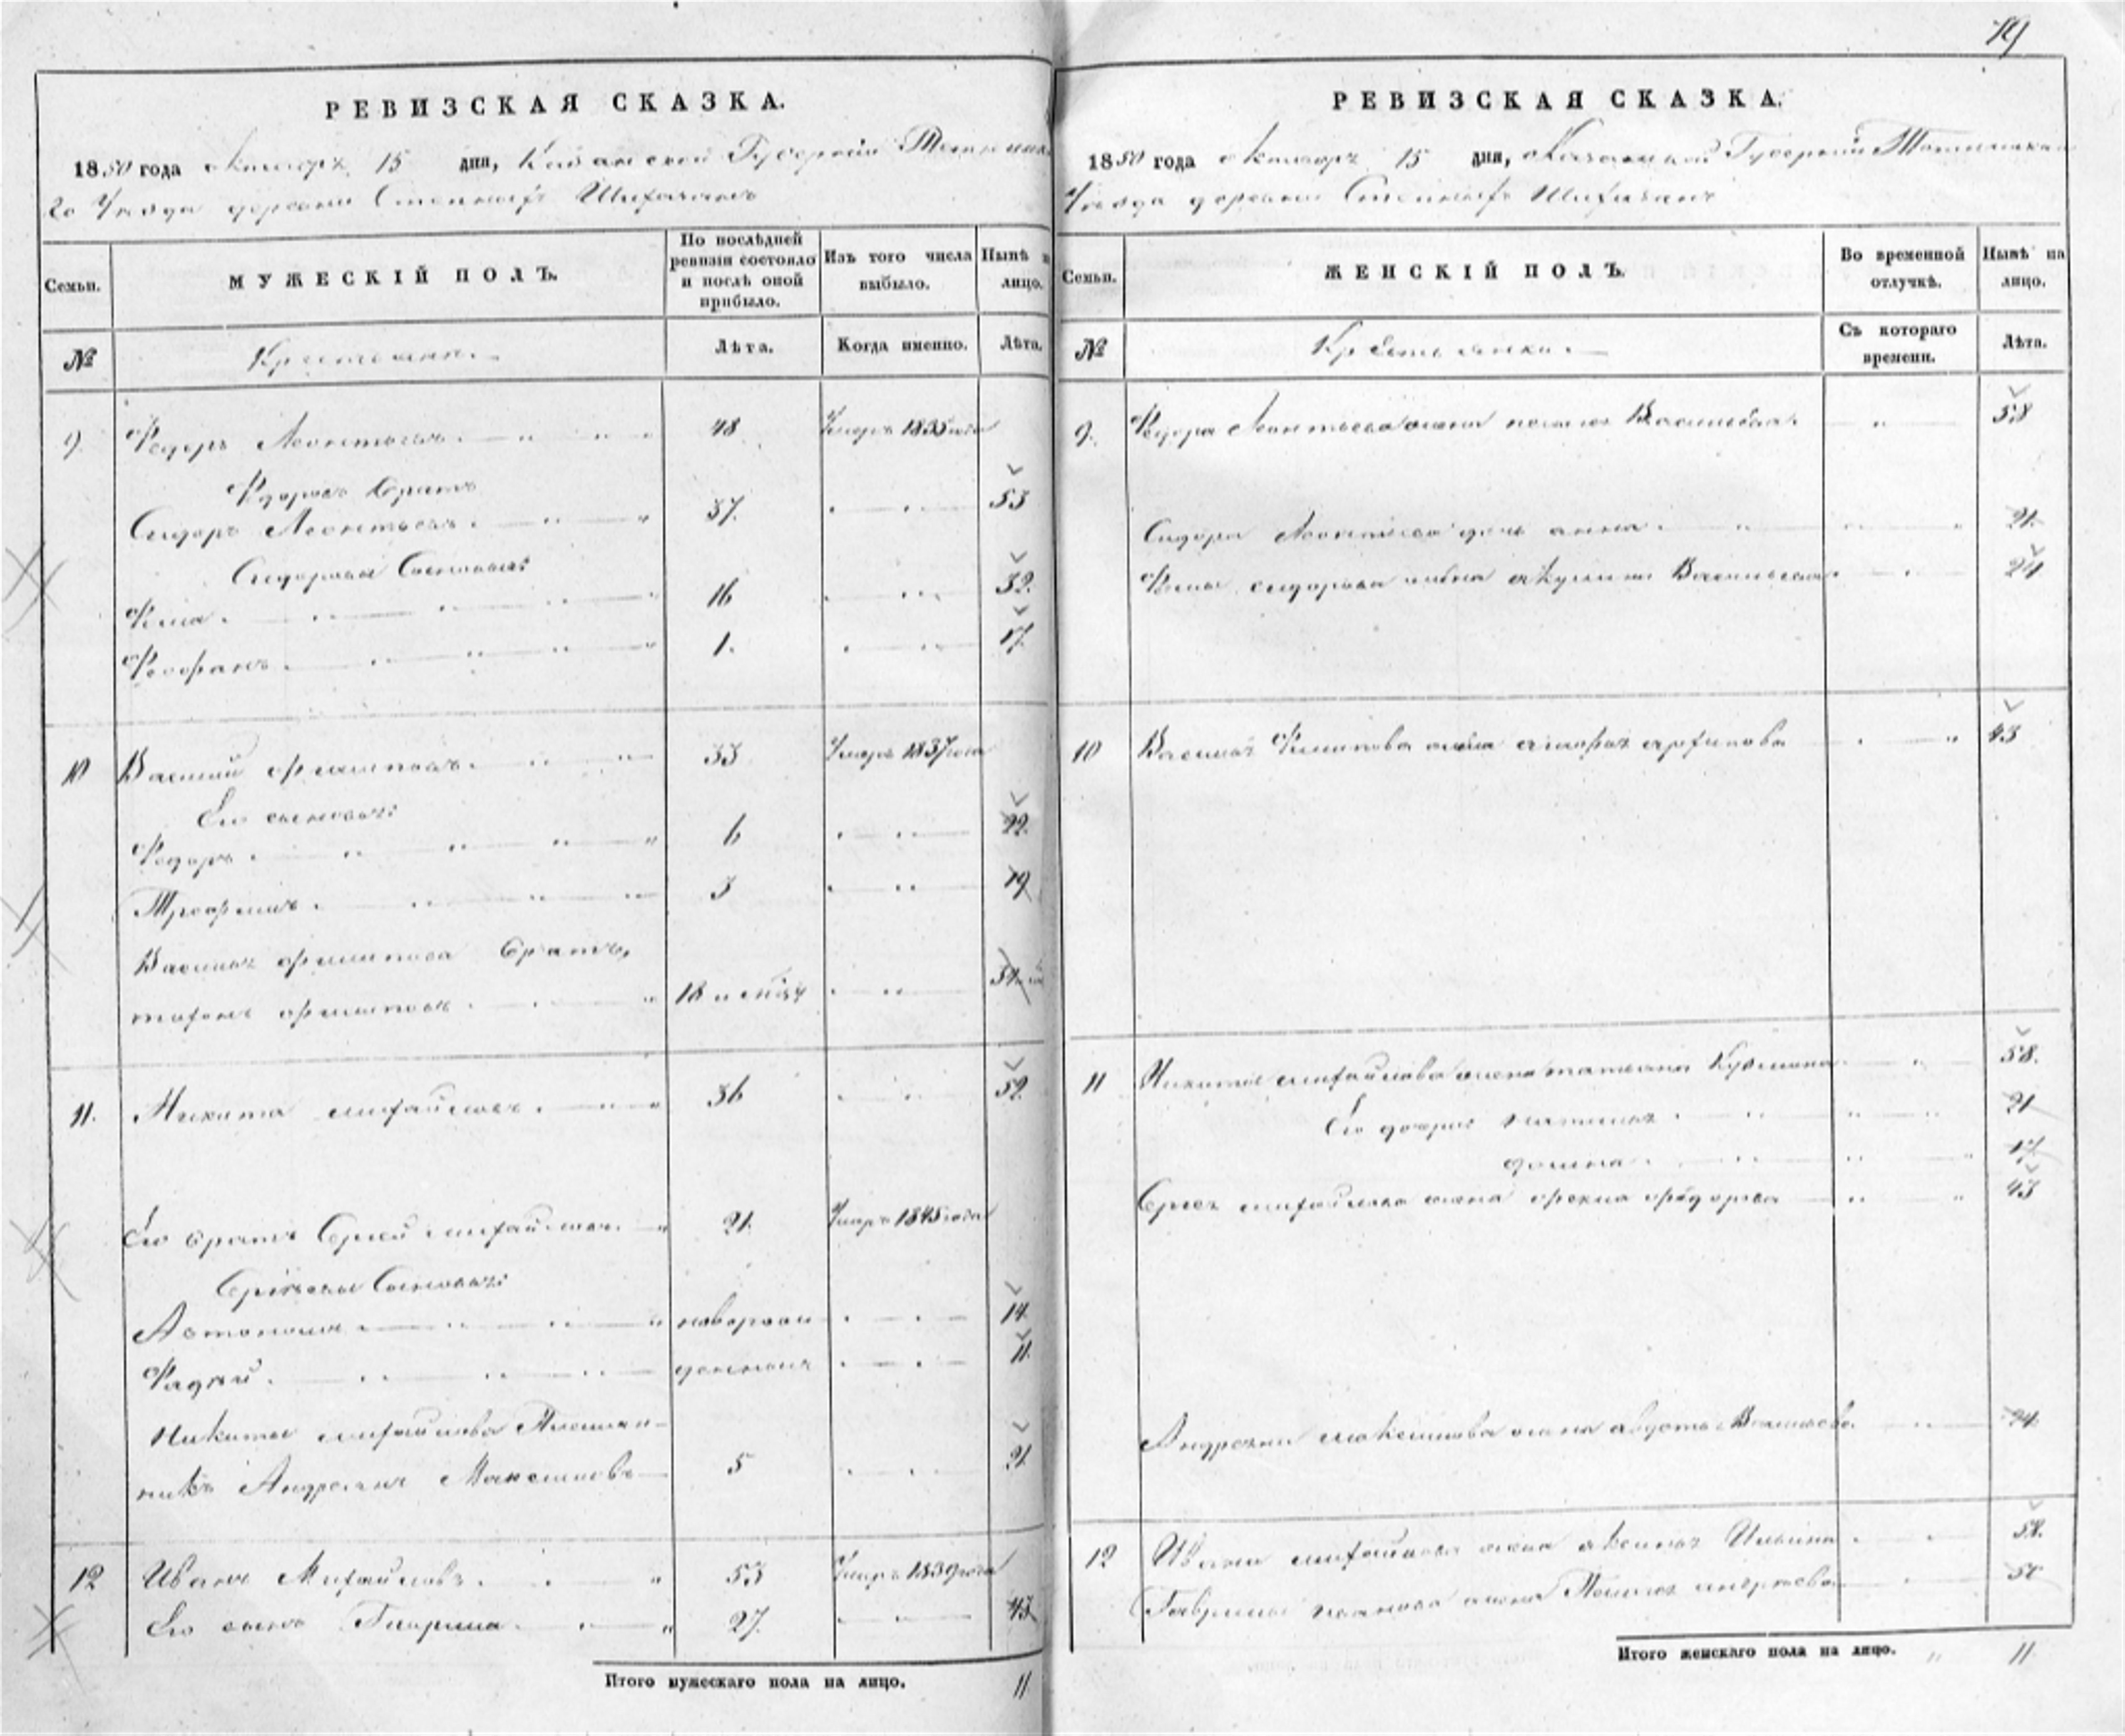 79
РЕВИЗСКАЯ СКАЗКА.
1850 года октября 15 дня, Казанской Губернии
го Уезда деревни Степныхъ Шихазанъ
Семьи.
МУЖЕСКІЙ ПОЛЪ.
По послѣдней ревизіи состояло и послѣ оной прибыло.
Изъ того числа выбыло.
Нынѣ на лицо.
№
Крестьяне.
Лѣта.
Когда именно.
Лѣта.
9. Федоръ Леонтьевъ. 48 Умеръ 1835 года
Федоровъ братъ
Сидоръ Леонтьевъ. 37. 53
Сидоровы Сыновья:
Фома. 16 32.
Феофанъ. 1. 17.
10 Василий Филиповъ. 33 Умеръ 1837 года
Его сыновья:
Федоръ. 6 22.
Трофимъ. 3 19
Василья Филипова братъ,
Филиповъ 18 34
11. Никита Михайловъ. 36 52.
Его братъ Сергей Михайловъ. 21. Умеръ 1845 года
Сергеевы Сыновья:
Автономъ новорож 14.
Фадей. денныя 11.
Никиты Михайлова Племян-
никъ Андреянъ Максимовъ 5 21.
12 Иванъ Михайловъ. 53 Умеръ 1839 года
Его сынъ Гаврила. 27. 43.
Итого мужескаго пола на лицо. 11
РЕВИЗСКАЯ СКАЗКА.
1850 года октября 15 дня, Казанской Губернии
Уезда деревни Степныхъ Шихазанъ
Семьи.
ЖЕНСКІЙ ПОЛЪ.
Во временной отлучкѣ.
Нынѣ на лицо.
№
Крестьянки.
Съ котораго времени.
Лѣта.
9. Федора Леонтьева жена Васильева. 58
Сидора Леонтьева дочь анна. 21.
Фомы сидорова жена акулина Васильева 24
10 Василья Филипова жена 43
11 Никиты михайлова жена татьяна Кузмина 58.
Его дочери 21
17.
Сергея михайлова жена фекла федорова 43
Андреяна максимова жена авдотья Васильева 24.
12 Ивана михайлова жена аксинья Ильина. 58.
Гаврилы иванова жена 50
Итого женскаго пола на лицо. 11